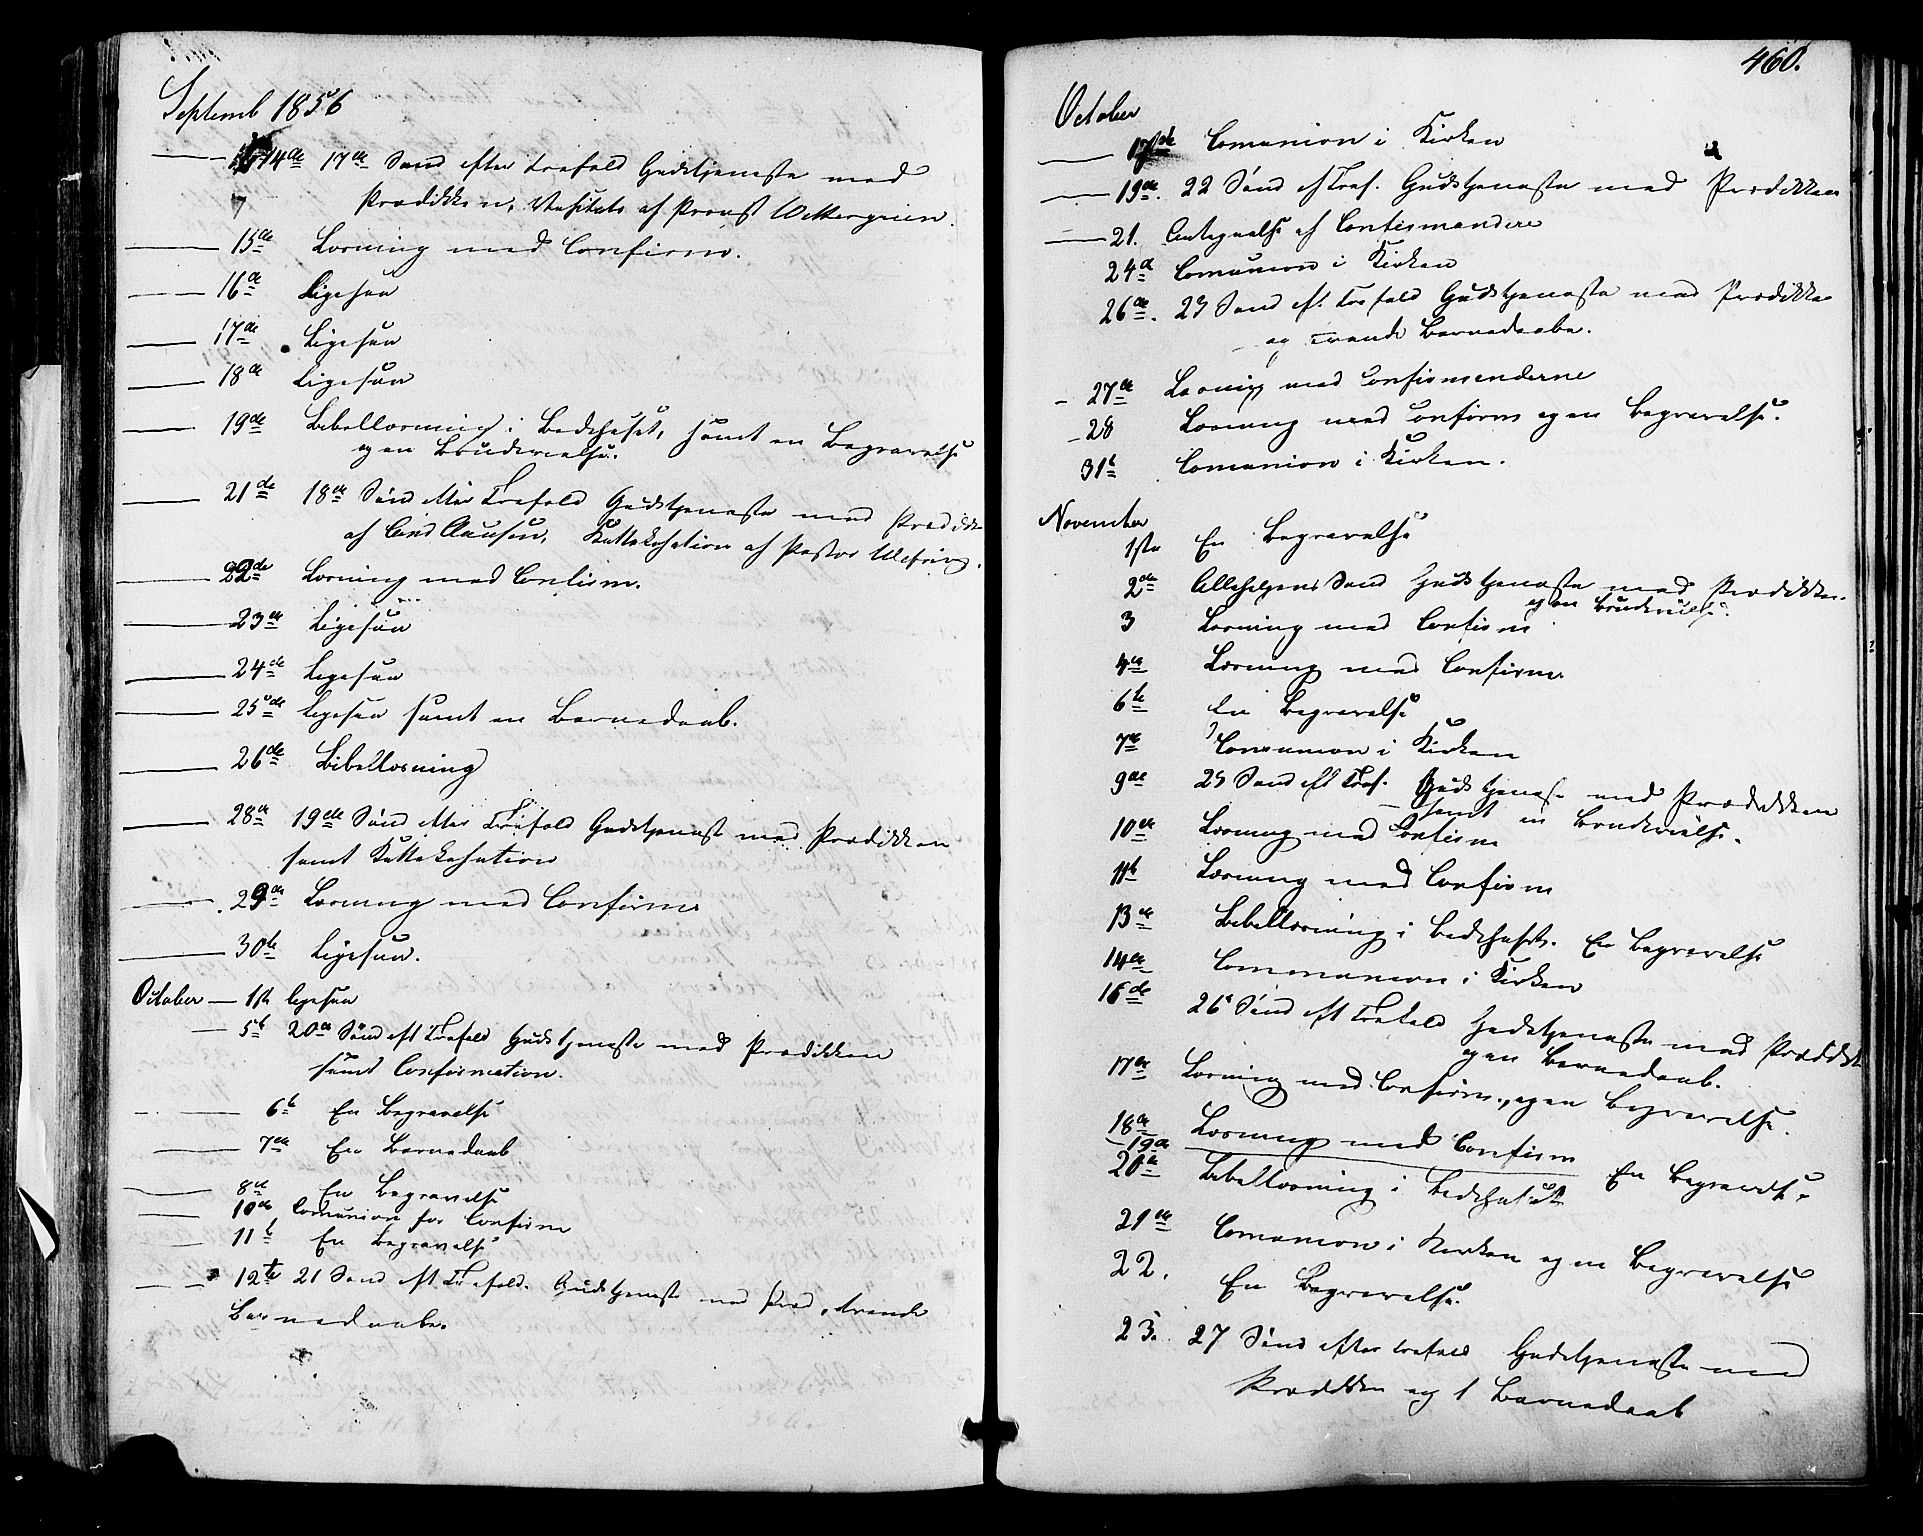 Septemb 1856
14de 17de Sønd efter Trefold Gudstjeneste med
Prædikken, Visitats af Provst
15de Læsning med Confirm.
16de Ligesaa
17de Ligesaa
18de Ligesaa
19de Bibellæsning i Bedehuset, samt en Begravelse
og en Brudevielse.
21de 18de Sønd efter Trefold Gudstjeneste med Prædikk
af Cand Clausen, af Pastor
22de Læsning med Confirm.
23de Ligesaa
24de Ligesaa
25de Ligesaa samt en Barnedaab.
26de Bibellæsning
28de 19de Sønd efter Trefold Gudstjenest med Prædikken
samt
29de Læsning med Confirm
30te Ligesaa.
October 1ste Ligesaa
5te 20de Sønd eft Trefold Gudstjeneste med Prædikken
samt Confirmation.
6te En Begravelse
7de En Barnedaab
8de En Begravelse
10de Comunion for Confirm
11te En Begravelse
12te 21 Sønd eft Trefold. Gudstjeneste med Præd, trende
Barnedaabe.
460.
October
17de Comunion i Kirken
19de. 22 Sønd ef Tref. Gudstjeneste med Prædikken
21. Antegnelse af Confirmandere
24de Comunion i Kirken
26de. 23 Sønd ef. Trefold Gudstjeneste med Prædikke
og trende Barnedaabe.
27de Læsning med Confirmanderne
28 Læsning med Confirm og en Begravelse.
31te Comunion i Kirken.
November
1ste En Begravelse
2de Allehelgens Sønd Gudstjeneste med Prædikke
og en Brudevielse.
3 Læsning med Confirm
4de Læsning med Confirm.
6te En Begravelse
7de Comunion i Kirken
9de 25 Sønd eft Tref. Gudstjenest med Prædikken
samt en Brudevielse.
10de Læsning med Confirm
11te Læsning med Confirm
13de Bibellæsning i Bedehuset. En Begravelse
14de Communion i Kirken
16de 26 Sønd eft Trefold Gudstjeneste med Prædikk
og en Barnedaab.
17de Læsning med Confirm., og en Begravelse.
18de Læsning med Confirm
19de
20de Bibellæsning i Bedehuset En Begravelse
21de Comunion i Kirken og en Begravelse
22. En Begravelse.
23. 27 Sønd efter Trefold Gudstjeneste med
Prædikken og 1 Barnedaab